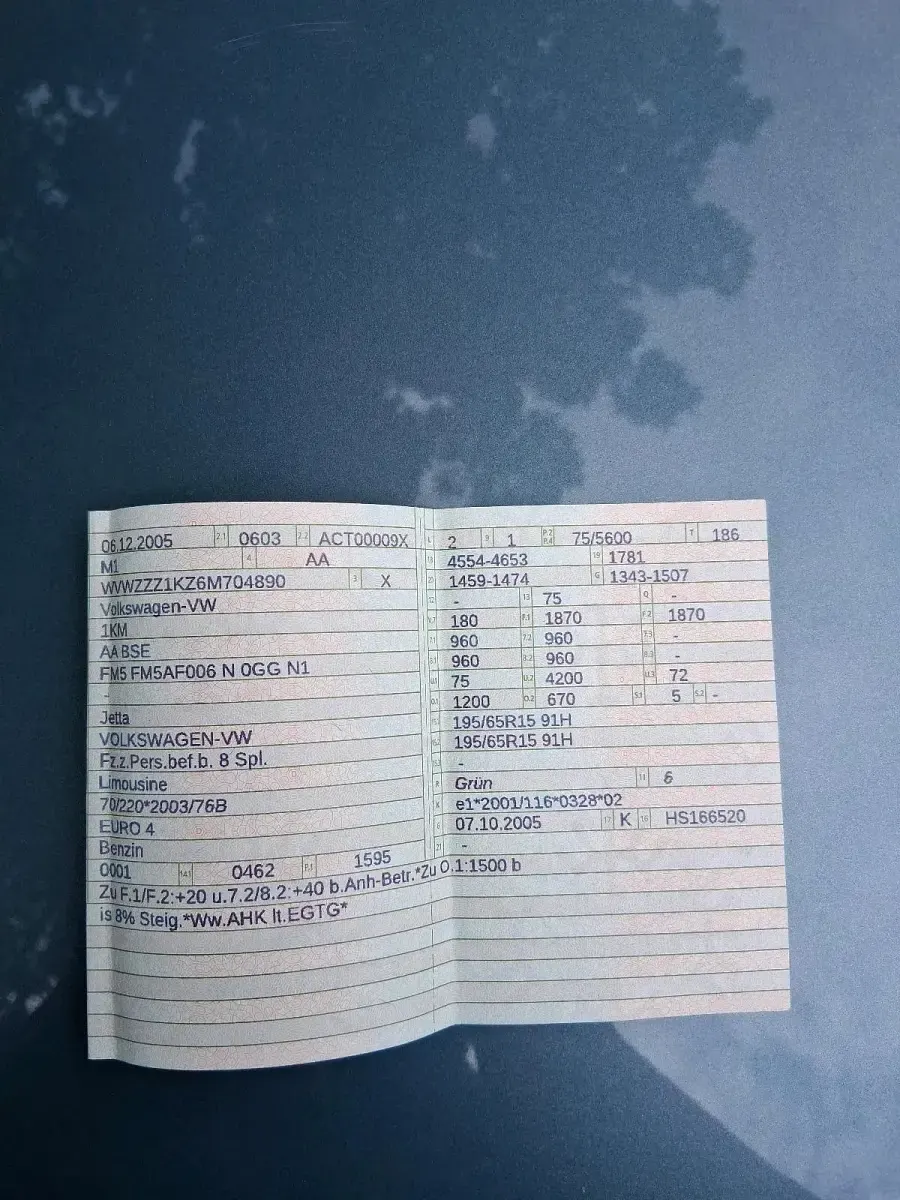 06.12.2005 2.1 0603 2.2 ACT00009X
M1 4 AA
WVWZZZ1KZ6M704890 3 X
Volkswagen-VW
1KM
AABSE
FM5 FM5AF006 N 0GG N1
-
Jetta
VOLKSWAGEN-VW
Fz.z.Pers.bef.b. 8 Spl.
Limousine
70/220*2003/76B
EURO 4
Benzin
0001 14.1 0462 P.1 1595
Zu F.1/F.2:+20 u.7.2/8.2:+40 b.Anh-Betr.*Zu O.1:1500 b
is 8% Steig.*Ww.AHK lt.EGTG*
L 2 9 1 P.2 P.4 75/5600 T 186
18 4554-4653 19 1781
20 1459-1474 G 1343-1507
12 - 13 75 Q -
V.7 180 F.1 1870 F.2 1870
7.1 960 7.2 960 7.3 -
8.1 960 8.2 960 8.3 -
U.1 75 U.2 4200 U.3 72
O.1 1200 O.2 670 S.1 5 S.2 -
15.1 195/65R15 91H
15.2 195/65R15 91H
15.3 -
R Grün 11 6
K e1*2001/116*0328*02
6 07.10.2005 17 K 16 HS166520
21 -